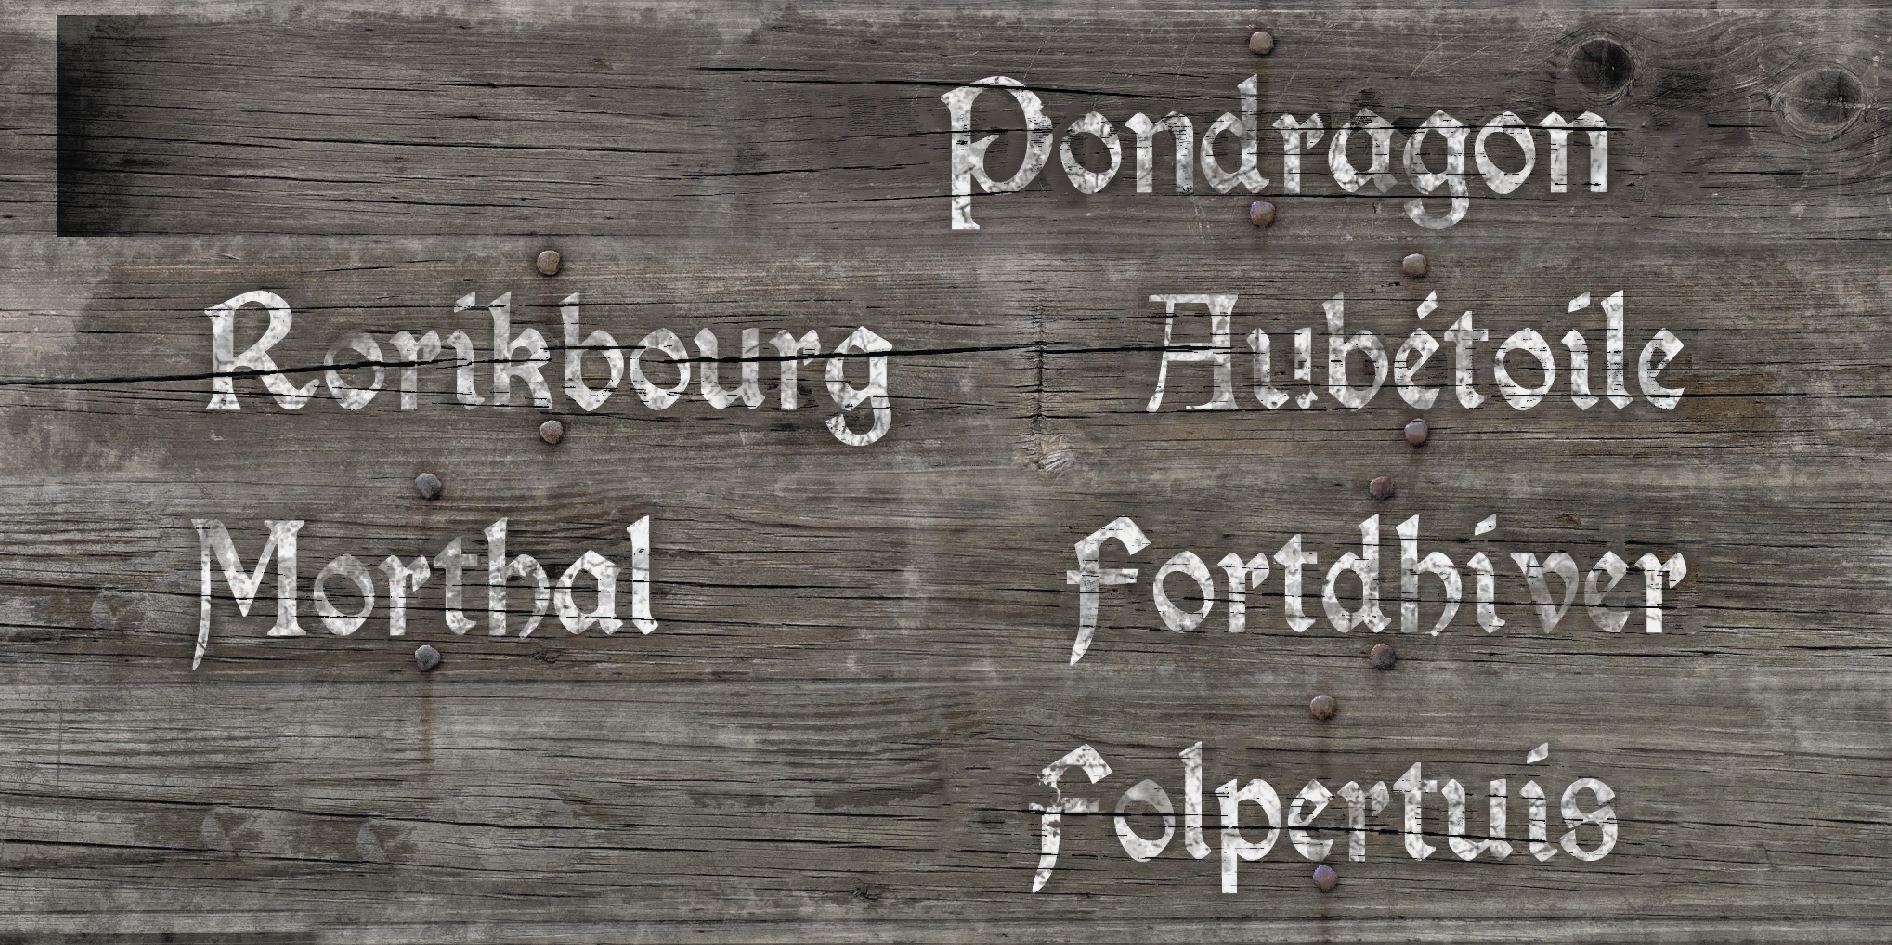 Pondragon
Rorikbourg Aubétoile
Morthal Fortdhiver
Folpertuis